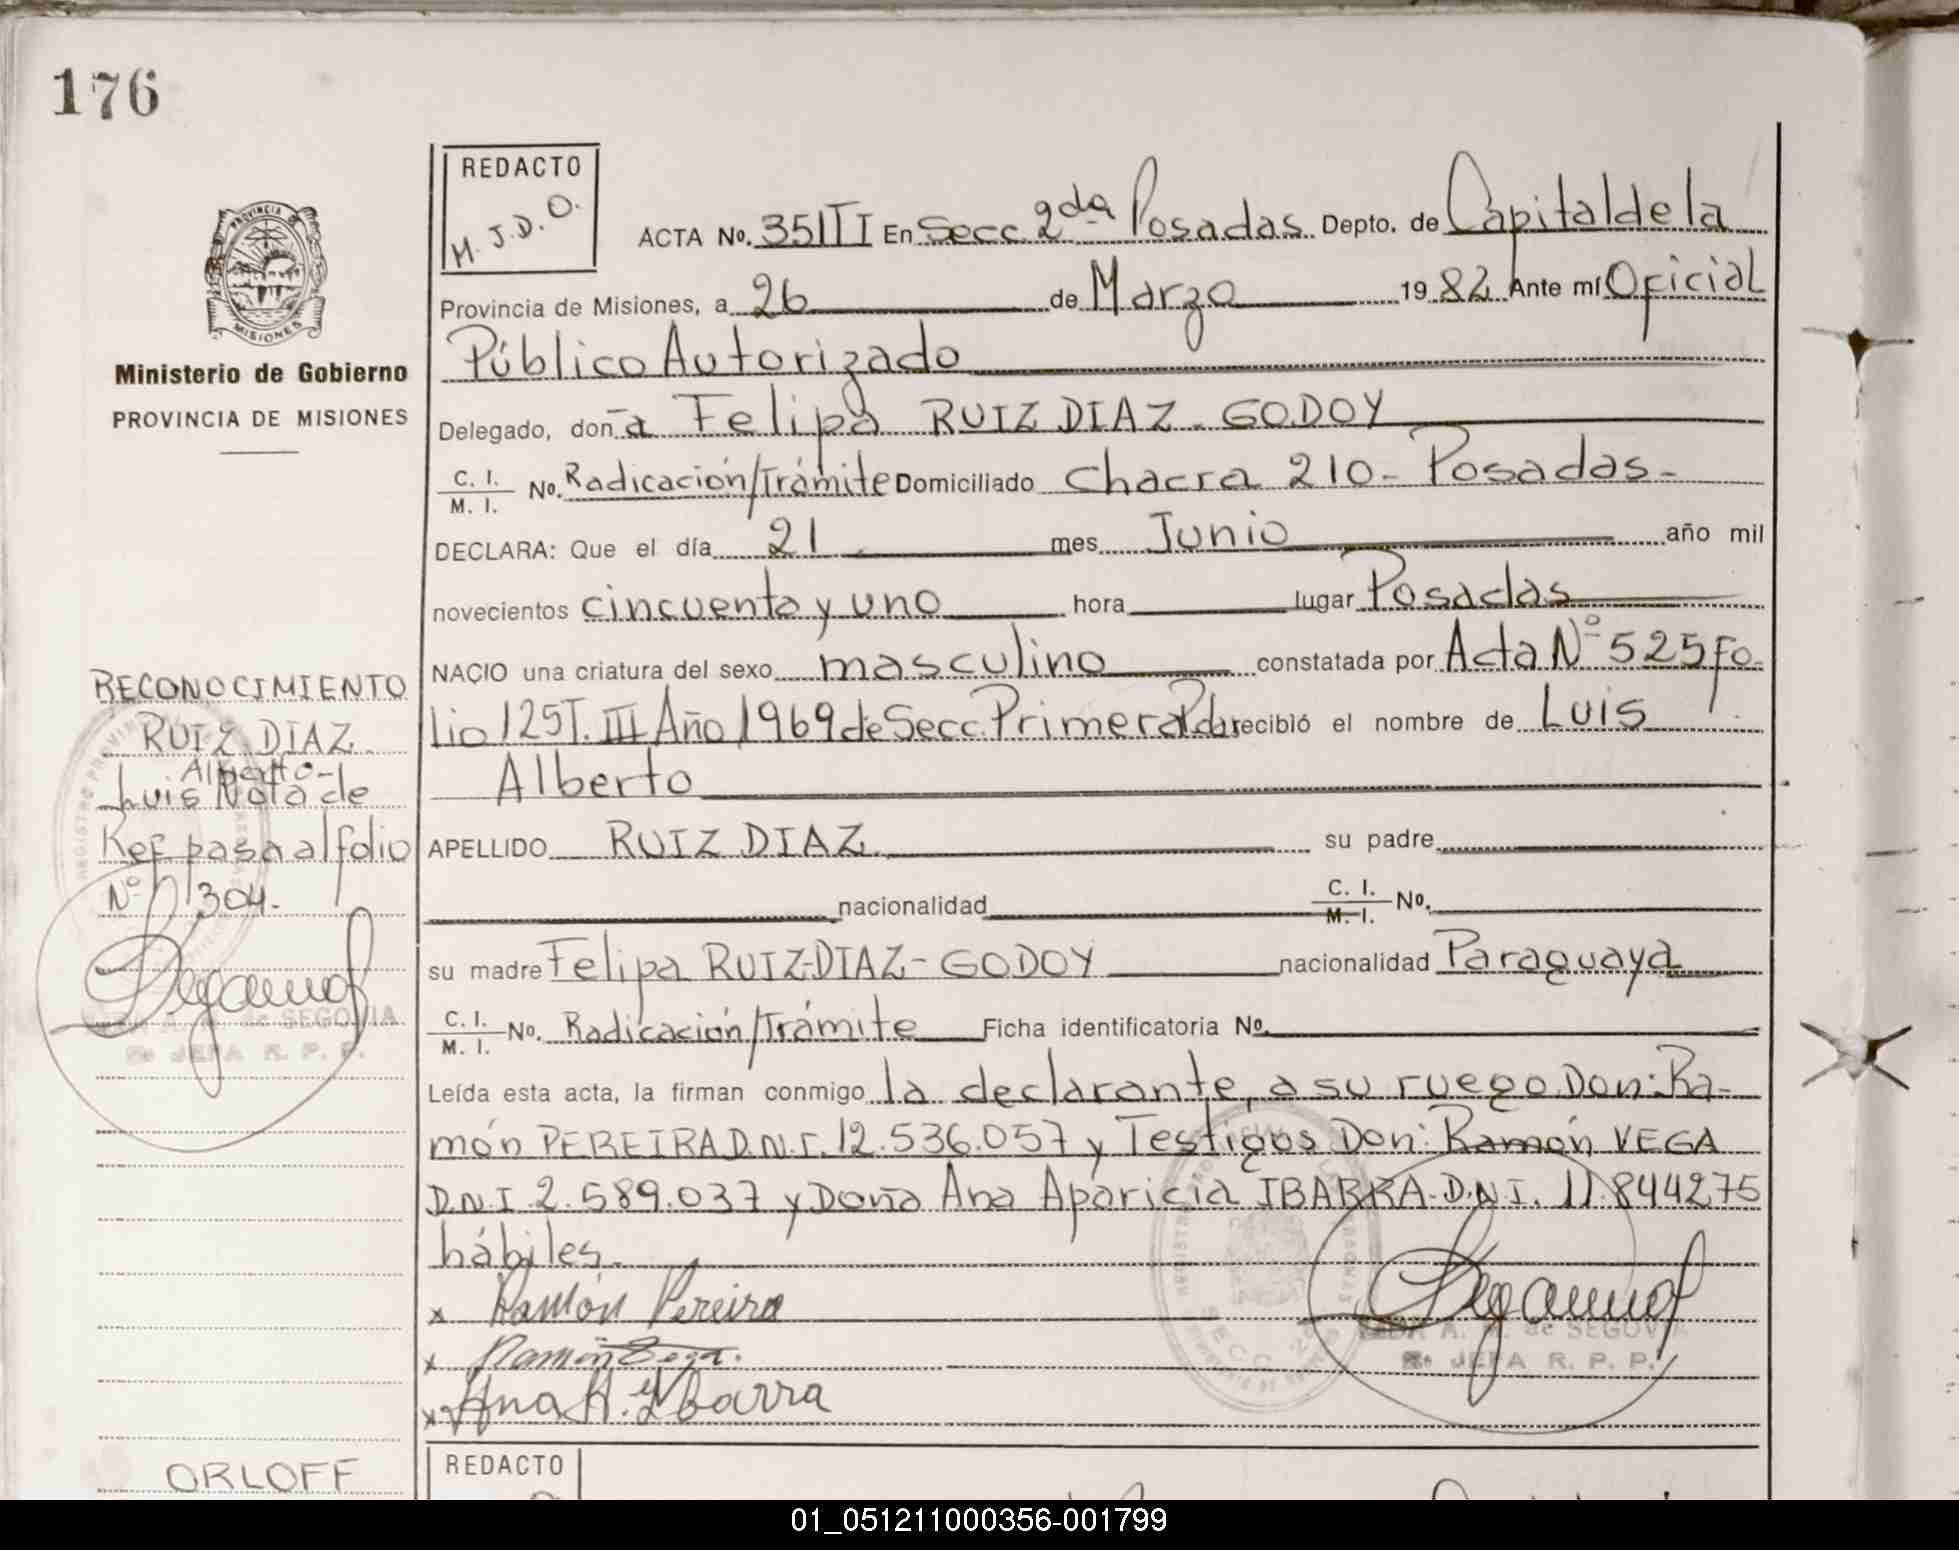 176
REDACTO
M.J.D.O.
ACTA No. 351TI En Secc 2da Posadas Depto. de Capital de la
Provincia de Misiones, a 26 de Marzo 1982 Ante mí Oficial
Público Autorizado
Delegado, doña Felipa RUIZ DIAZ - GODOY
C. I. M. I. No. Radicación/Trámite Domiciliado Chacra 210 - Posadas -
DECLARA: Que el día 21 mes Junio año mil
novecientos cincuenta y uno hora lugar Posadas
NACIO una criatura del sexo masculino constatada por Acta Nº 525 Fo-
lio 125 T. III Año 1969 de Secc. Primera Pdas recibió el nombre de Luis
Alberto
APELLIDO RUIZ DIAZ su padre
nacionalidad C. I. M. I. No.
su madre Felipa RUIZ-DIAZ-GODOY nacionalidad Paraguaya
C. I. M. I. No. Radicación/Trámite Ficha identificatoria No.
Leída esta acta, la firman conmigo la declarante, a su ruego Don: Ra-
món PEREIRA D.N.I. 12.536.057 y Testigos Don: Ramón VEGA
D.N.I. 2.589.037 y Doña Ana Aparicia IBARRA - D.N.I. 11.844275
hábiles.
x Ramón Pereira
x Ramón Vega.
x Ana A. Ybarra
A. M. de SEGOVIA
JEFA R. P. P.
PROVINCIA DE
MISIONES
Ministerio de Gobierno
PROVINCIA DE MISIONES
RECONOCIMIENTO
RUIZ DIAZ
Alberto-
Luis Nota de
Ref pasa al folio
Nº 304.
A. M. de SEGOVIA
JEFA R. P. P.
ORLOFF
REDACTO
01_051211000356-001799